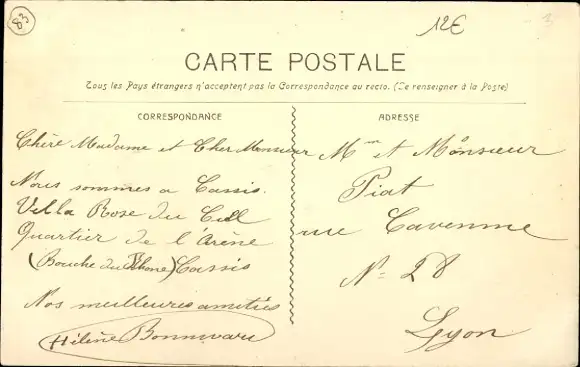 83
12E
3
CARTE POSTALE
Tous les Pays étrangers n'acceptent pas la Correspondance au recto. (Se renseigner à la Poste)
CORRESPONDANCE
Chère Madame et Cher Monsieur
Nous sommes a Cassis.
Villa Rose du
Quartier de l'Arène
(Bouche du Rhone) Cassis
Nos meilleures amitiés
Hélène
ADRESSE
Mme et Monsieur
Piat
rue
No 28
Lyon